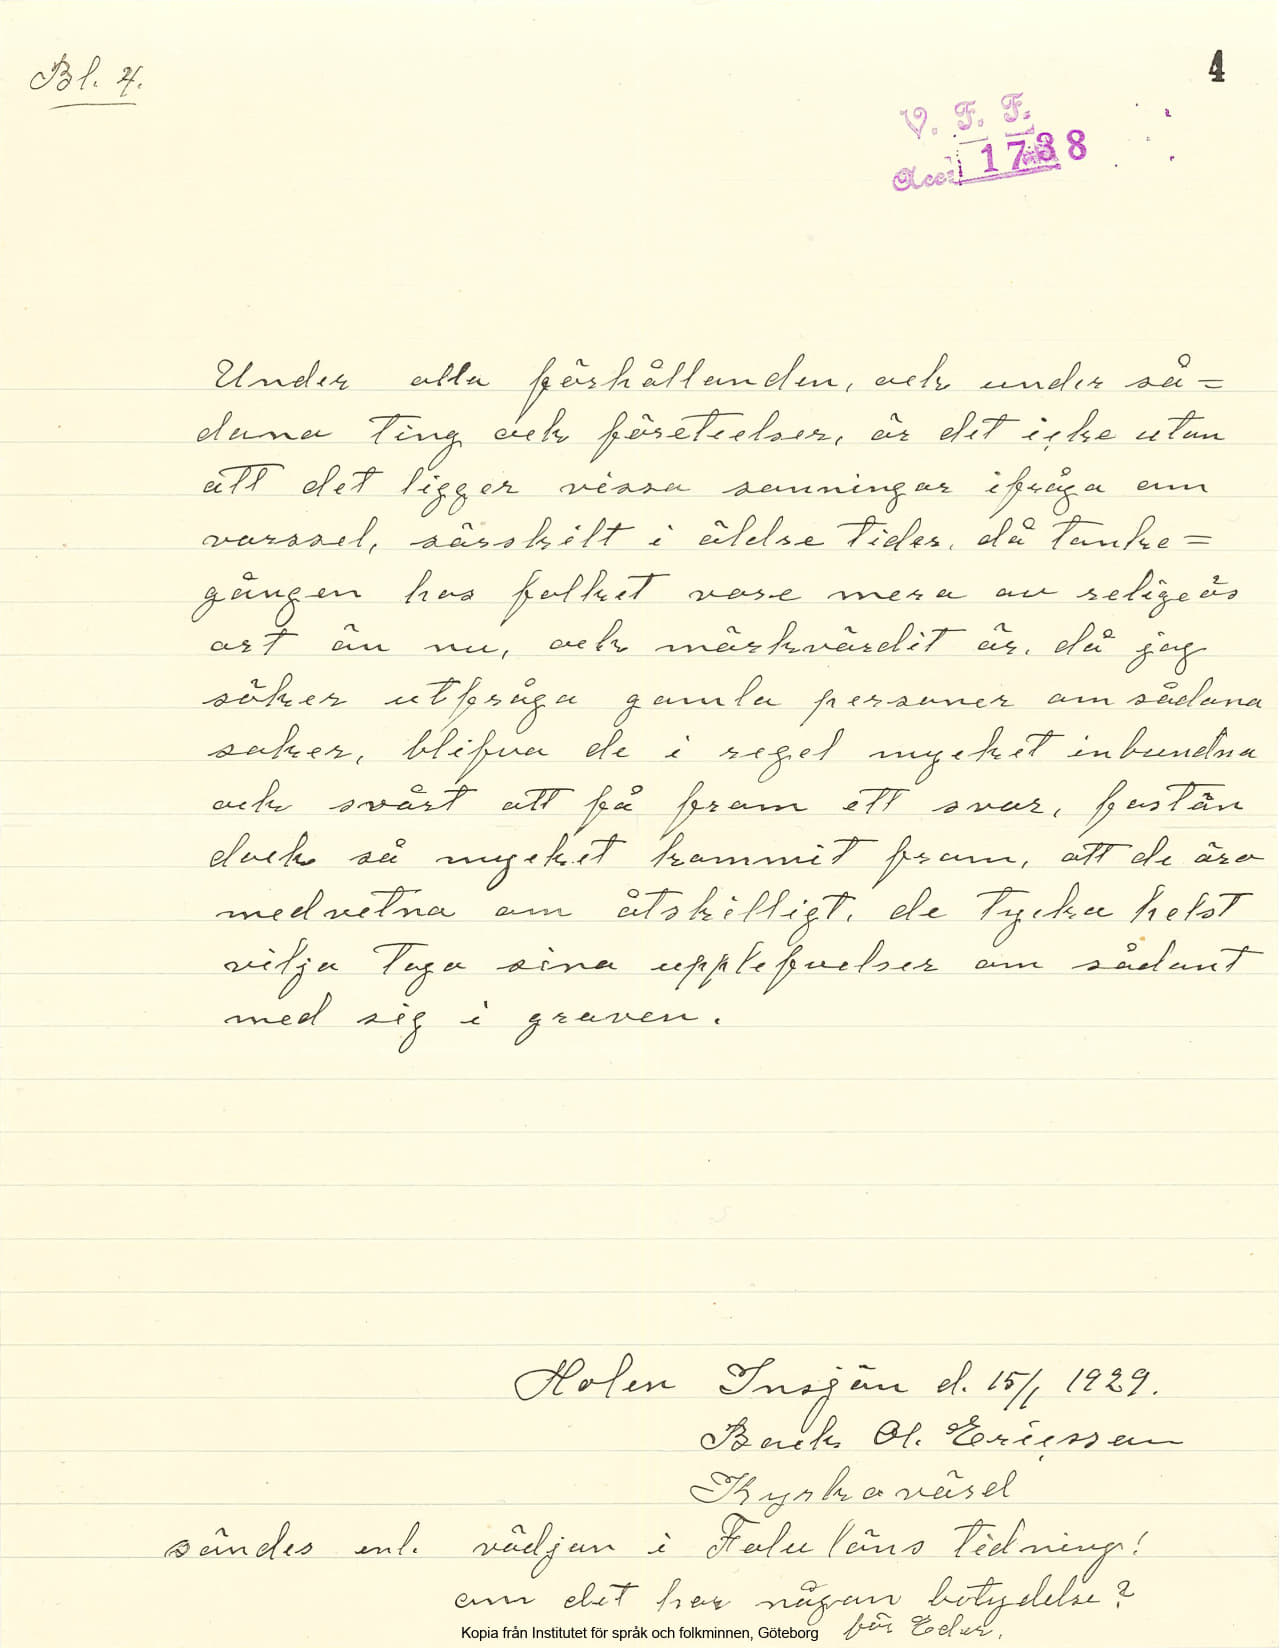 Bl. 4.
4
V. F. F.
Acc. 1738
Under alla förhållanden, och under så=
dana ting och företeelser, är det icke utan
att det ligger vissa sanningar ifråga om
varssel, särskilt i äldre tider, då tanke=
gången hos folket vore mera av religeös
art än nu, och märkvärdit är, då jag
söker utfråga gamla personer om sådana
saker, blifva de i regel mycket inbundna
och svårt att få fram ett svar, fastän
dock så mycket kommit fram, att de äro
medvetna om åtskilligt, de tycka helst
vilja taga sina upplefvelser om sådant
med sig i graven.
Holen Insjön d. 15/1 1929.
Back Ol. Ericsson
Kyrkovärd
sändes enl. vädjan i Falu läns tidning!
om det har någon betydelse?
för Eder.
Kopia från Institutet för språk och folkminnen, Göteborg